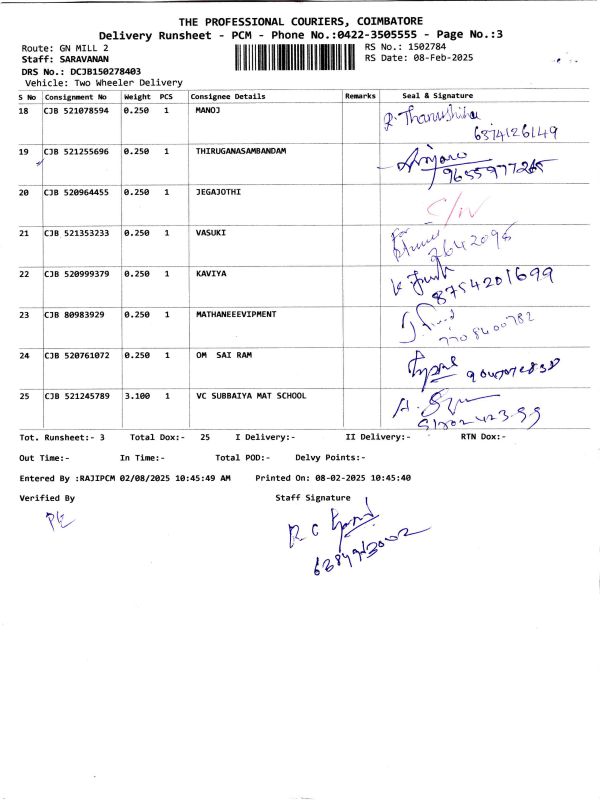 THE PROFESSIONAL COURIERS, COIMBATORE
Delivery Runsheet - PCM - Phone No.:0422-3505555 - Page No.:3
Route: GN MILL 2 RS No.: 1502784
Staff: SARAVANAN RS Date: 08-Feb-2025
DRS No.: DCJB150278403
Vehicle: Two Wheeler Delivery
S No Consignment No Weight PCS Consignee Details Remarks Seal & Signature
18 CJB 521078594 0.250 1 MANOJ R. Tharushika
6374126149
19 CJB 521255696 0.250 1 THIRUGANASAMBANDAM
9655977265
20 CJB 520964455 0.250 1 JEGAJOTHI S/W
21 CJB 521353233 0.250 1 VASUKI for
2642095
22 CJB 520999379 0.250 1 KAVIYA
8754201699
23 CJB 80983929 0.250 1 MATHANEEEVIPMENT
7708400782
24 CJB 520761072 0.250 1 OM SAI RAM
25 CJB 521245789 3.100 1 VC SUBBAIYA MAT SCHOOL
Tot. Runsheet:- 3 Total Dox:- 25 I Delivery:- II Delivery:- RTN Dox:-
Out Time:- In Time:- Total POD:- Delvy Points:-
Entered By :RAJIPCM 02/08/2025 10:45:49 AM Printed On: 08-02-2025 10:45:40
Verified By Staff Signature